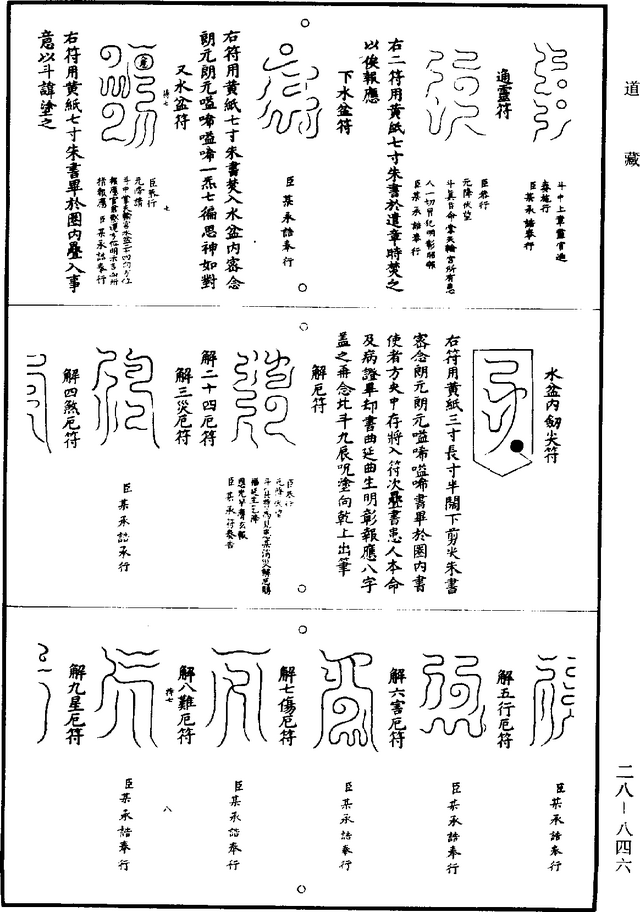 道藏
斗中上章靈官通
奏施行
臣某承誥奉行
通靈符
臣恭行
元降伏望
斗真吕命掌天輪宮所有患
人一切目化明彰昭報
臣某承誥奉行
右二符用黄紙七寸朱書於遣章時焚之
以俟報應
下水盆符
臣某承誥奉行
右符用黄紙七寸朱書焚入水盆内密念
朗元朗元嗌啼嗌啼一炁七徧思神如對
又水盆符
持七
七
臣恭行
元降請
情報應臣某承誥奉行
右符用黄紙七寸朱書畢於圈内疊入事
意以斗諱塗之
水盆内劒尖符
右符用黄紙三寸長寸半闊下剪尖朱書
密念朗元朗元嗌啼嗌啼書畢於圈内書
使者方央中存將入符次疊書患人本命
及病證畢却書曲延曲生明彰報應八字
蓋之再念北斗九辰呪塗向乾上出筆
解厄符
臣恭行
元降伏望
臣某承行奏告
解二十四厄符
解三災厄符
臣某承誥承行
解四煞厄符
臣某承誥奉行
解五行厄符
臣某承誥奉行
解六害厄符
臣某承誥奉行
解七傷厄符
臣某承誥奉行
解八難厄符
持七
八
臣某承誥奉行
解九星厄符
二八-八四六